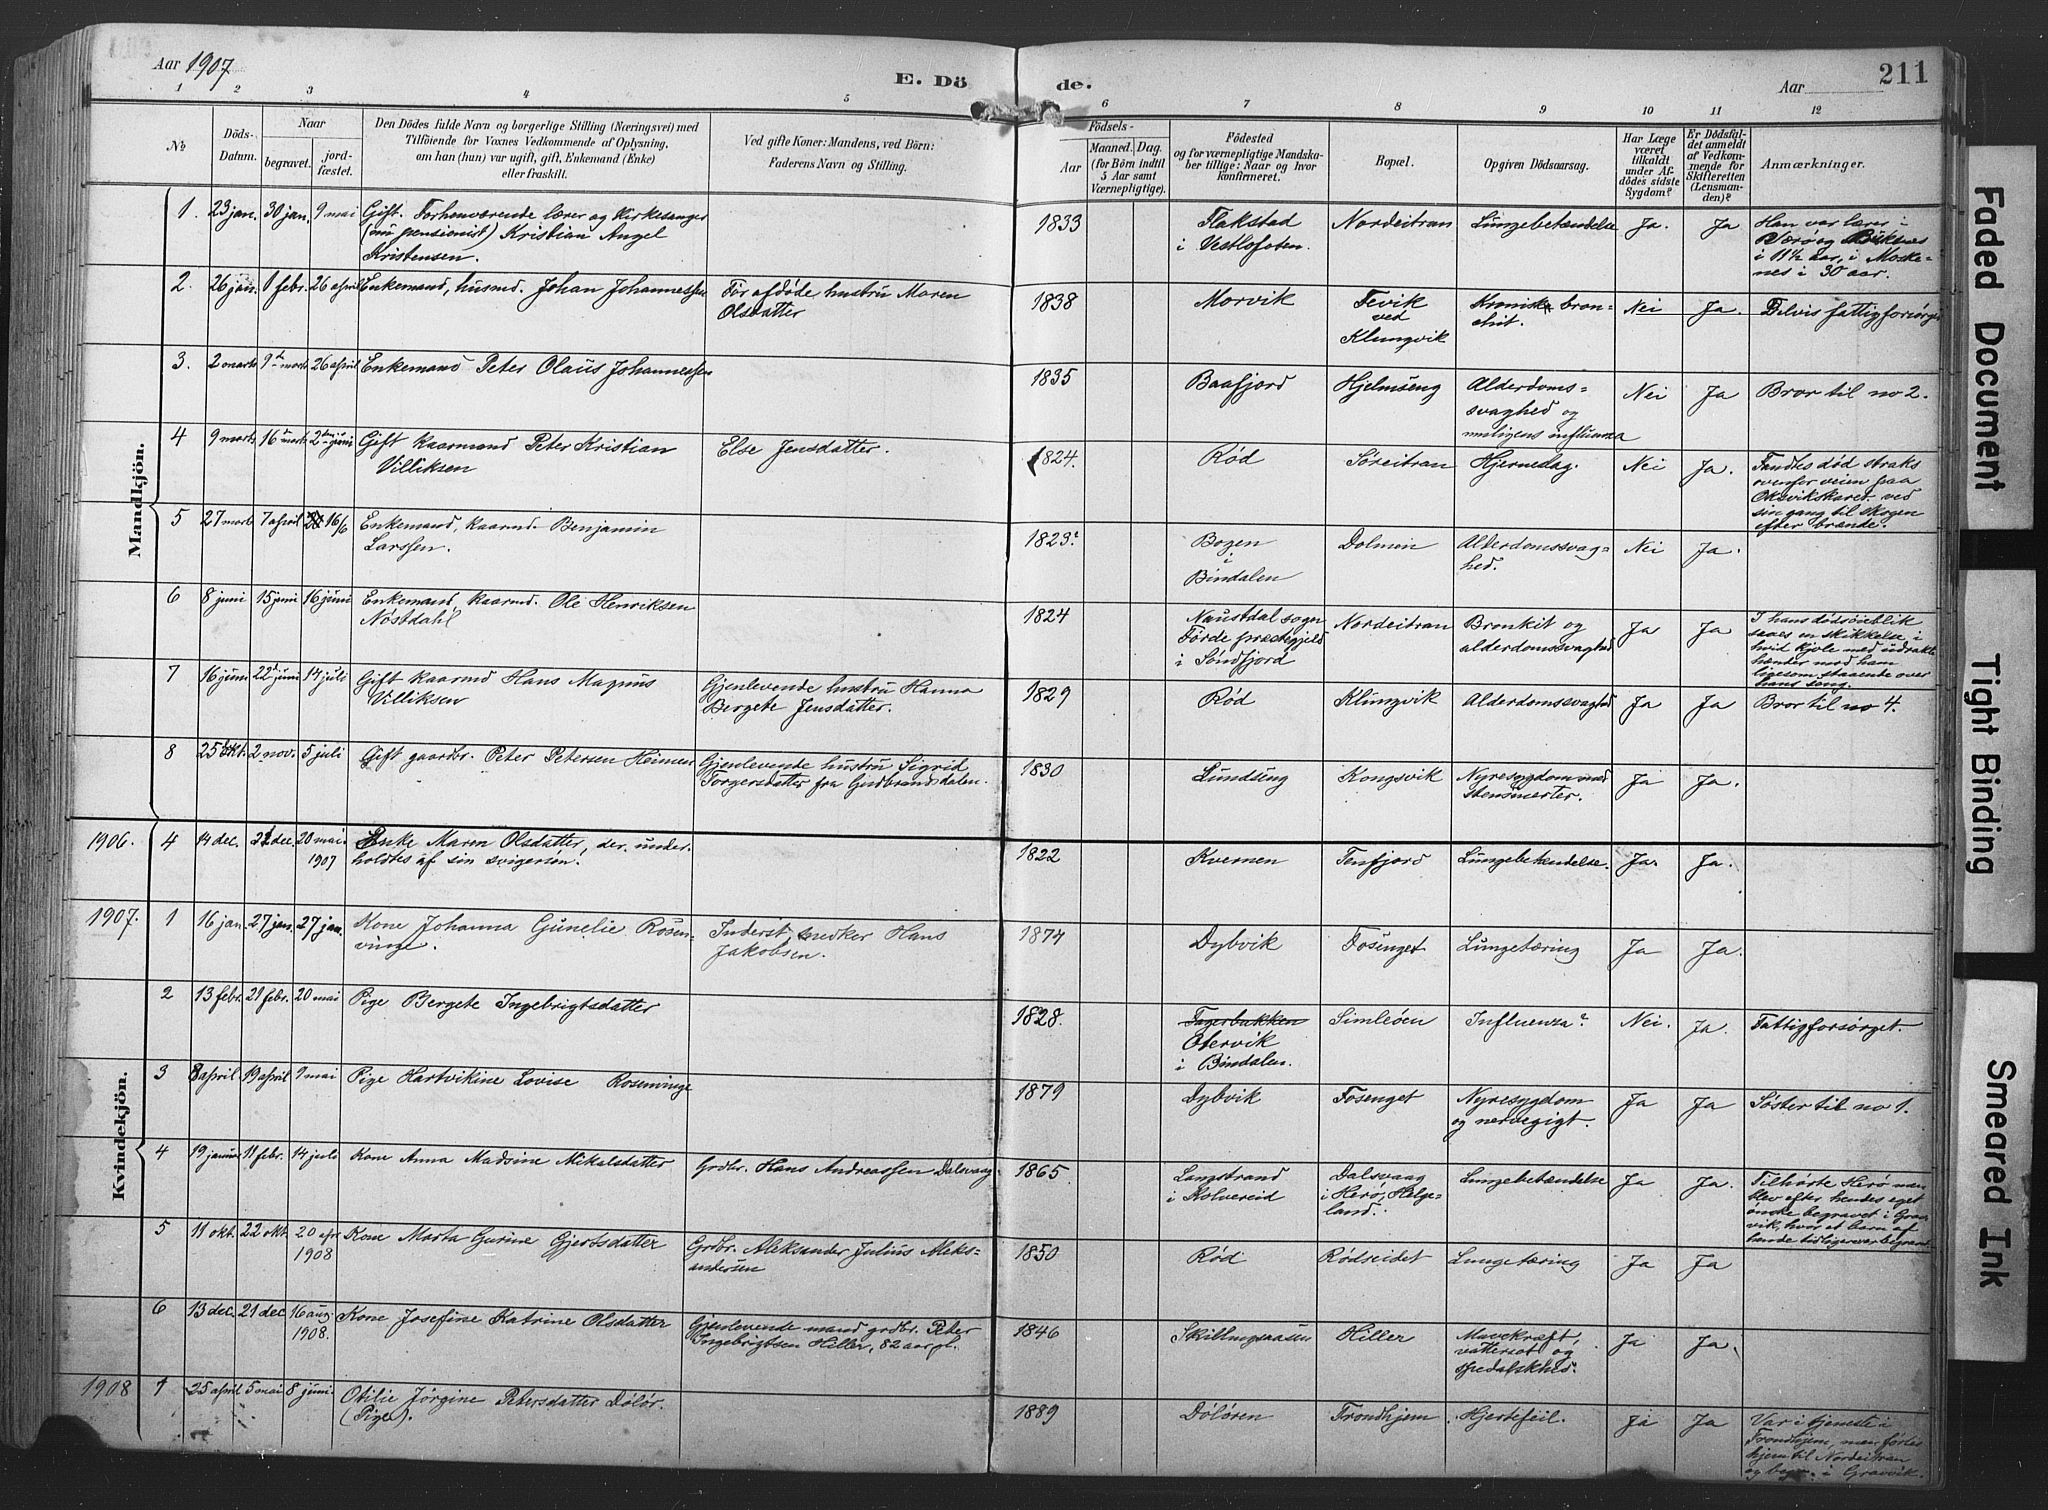 Aar 1907
E. Dö
de.
Aar
211
1 2 3 4 5 6 7 8 9 10 11 12
№
Döds-
Datum.
Naar
begravet.
jord-
fæstet.
Den Dödes fulde Navn og borgerlige Stilling (Næringsvei) med
Tilföiende for Voxnes Vedkommende af Oplysning,
om han (hun) var ugift, gift, Enkemand (Enke)
eller fraskilt.
Ved gifte Koner: Mandens, ved Börn:
Faderens Navn og Stilling.
Födsels-
Aar
Maaned. Dag.
(for Börn indtil
5 Aar samt
Værnepligtige).
Födested
og for værnepligtige Mandska-
ber tillige: Naar og hvor
konfirmeret.
Bopæl.
Opgiven Dödsaarsag.
Har Læge
været
tilkaldt
under Af-
dödes sidste
Sygdom?
Er Dödsfal-
det anmeldt
af Vedkom-
mende for
Skifteretten
(Lensman-
den)?
Anmærkninger.
Mandkjön.
1 23 jan. 30 jan. 9 mai Gift. Forhenværende lærer og kirkesanger
(nu pensionist) Kristian Angel
Kristensen.
1833 Flakstad
i Vestlofoten.
Nordeitran Lungebetændelse Ja. Ja Han var lærer i
Værø og
i 11½ aar, i Moske-
nes i 30 aar.
2. 26 jan. 1 febr. 26 april Enkemand, husmd. Johan Johannessen
Før afdøde hustru Maren
Olsdatter
1838 Morvik Tevik
ved
Klungvik
Kronisk bron-
chit.
Nei Ja. Delvis fattigforsørget
3. 2 marts 9de marts 26 april Enkemand Peter Olaus Johannessen
1835 Baafjord Hjelmseng Alderdoms-
svaghed og
muligens influenza
Nei Ja Bror til no 2.
4 9 marts 16de marts 2den juni Gift kaarmand Peter Kristian
Villiksen
Else Jensdatter.
1824. Rød Søreitran Hjerneslag. Nei Ja. Fandtes død straks
ovenfor veien paa
Oksvikskaret ved
sin gang til skogen
efter brænde.
5 27 marts 7 april 16/6 Enkemand, kaarmd. Benjamin
Larssen.
1823? Bogen
i
Bindalen
Dolmen Alderdomssvag-
hed.
Nei Ja.
6 8 juni 15 juni 16 juni Enkemand, kaarmd. Ole Henriksen
Nøstdahl
1824 Naustdal sogn
Førde præstegjeld
i Søndfjord
Nordeitran Bronkit og
alderdomssvaghed
Ja Ja I hans dødsøieblik
saaes en skikkelse i
hvid kjole med udrakte
hænder mod ham
ligesom staaende over
hans seng.
7 16 juni 22de juni 14 juli Gift kaarmd Hans Magnus
Villiksen
Gjenlevende hustru Hanna
Bergete Jensdatter.
1829 Rød Klungvik Alderdomssvaghed Ja Ja Bror til no 4.
8 25 okt. 2 nov. 5 juli Gift gaardbr. Peter Petersen Heimen
Gjenlevende hustru Sigrid
Torgersdatter fra Gudbrandsdalen.
1830 Lundseng Kongsvik Nyresygdom med
stensmerter.
Ja Ja.
Kvindekjön.
1906. 4 14 dec. dec. 20 mai
1907
Enke Maren Olsdatter, der under-
holdtes af sin svigersøn.
1822 Kvernen Tenfjord Lungebetændelse. Ja. Ja.
1907. 1 16 jan 27 jan. 27 jan. Kone Johanna Gunelie Rosen-
vinge.
Inderst, snedker Hans
Jakobsen.
1874 Dybvik Fosenget Lungetæring Ja Ja.
2 13 febr. 21 febr. 20 mai Pige Bergete Ingebrigtsdatter
1828. Fagerbakken
Otervik
i Bindalen.
Simleöen Influenza? Nei. Ja. Fattigforsørget.
3 8 april 19 april 9 mai Pige Hartvikine Lovise Rosenvinge
1879 Dybvik Fosenget Nyresygdom
og nervegigt.
Ja Ja Søster til no 1.
4 19 januar 11 febr. 14 juli Kone Anna Madsine Mikalsdatter
Grdbr. Hans Andreassen Dalsvaag
1865 Langstrand
i Kolvereid
Dalsvaag
i Herø, Helge-
land.
Lungebetændelse Ja Ja. Tilhørte Herø men
blev efter hendes eget
ønske begravet i Grav-
vik, hvor et barn af
hende tidligere var begravet
5 11 okt. 22 okt. 20 apr
1908
Kone Marta Gurine Gjertsdatter
Grdbr. Aleksander Julius Aleks-
andersen
1850 Rød Rødseidet Lungetæring Ja Ja
6 13 dec. 21 dec. 16 aug.
1908.
Kone Josefine Katrine Olsdatter
Gjenlevende mand grdbr. Peter
Ingebrigtsen Hiller, 82 aar gl.
1846 Skillingsaasen Hiller Mavekræft,
vattersot og
spedalskhed.
Ja Ja.
1908 1 25 april 5 mai 8 juni. Otilie Jørgine Petersdatter Døløe.
(Pige).
1889 Døløren Trondhjem. Hjertefeil. Ja Ja Var i tjeneste i
Trondhjem, men førtes
hjem til Nordeitran
og begr. i Gravvik.
Faded Document
Tight Binding
Smeared Ink